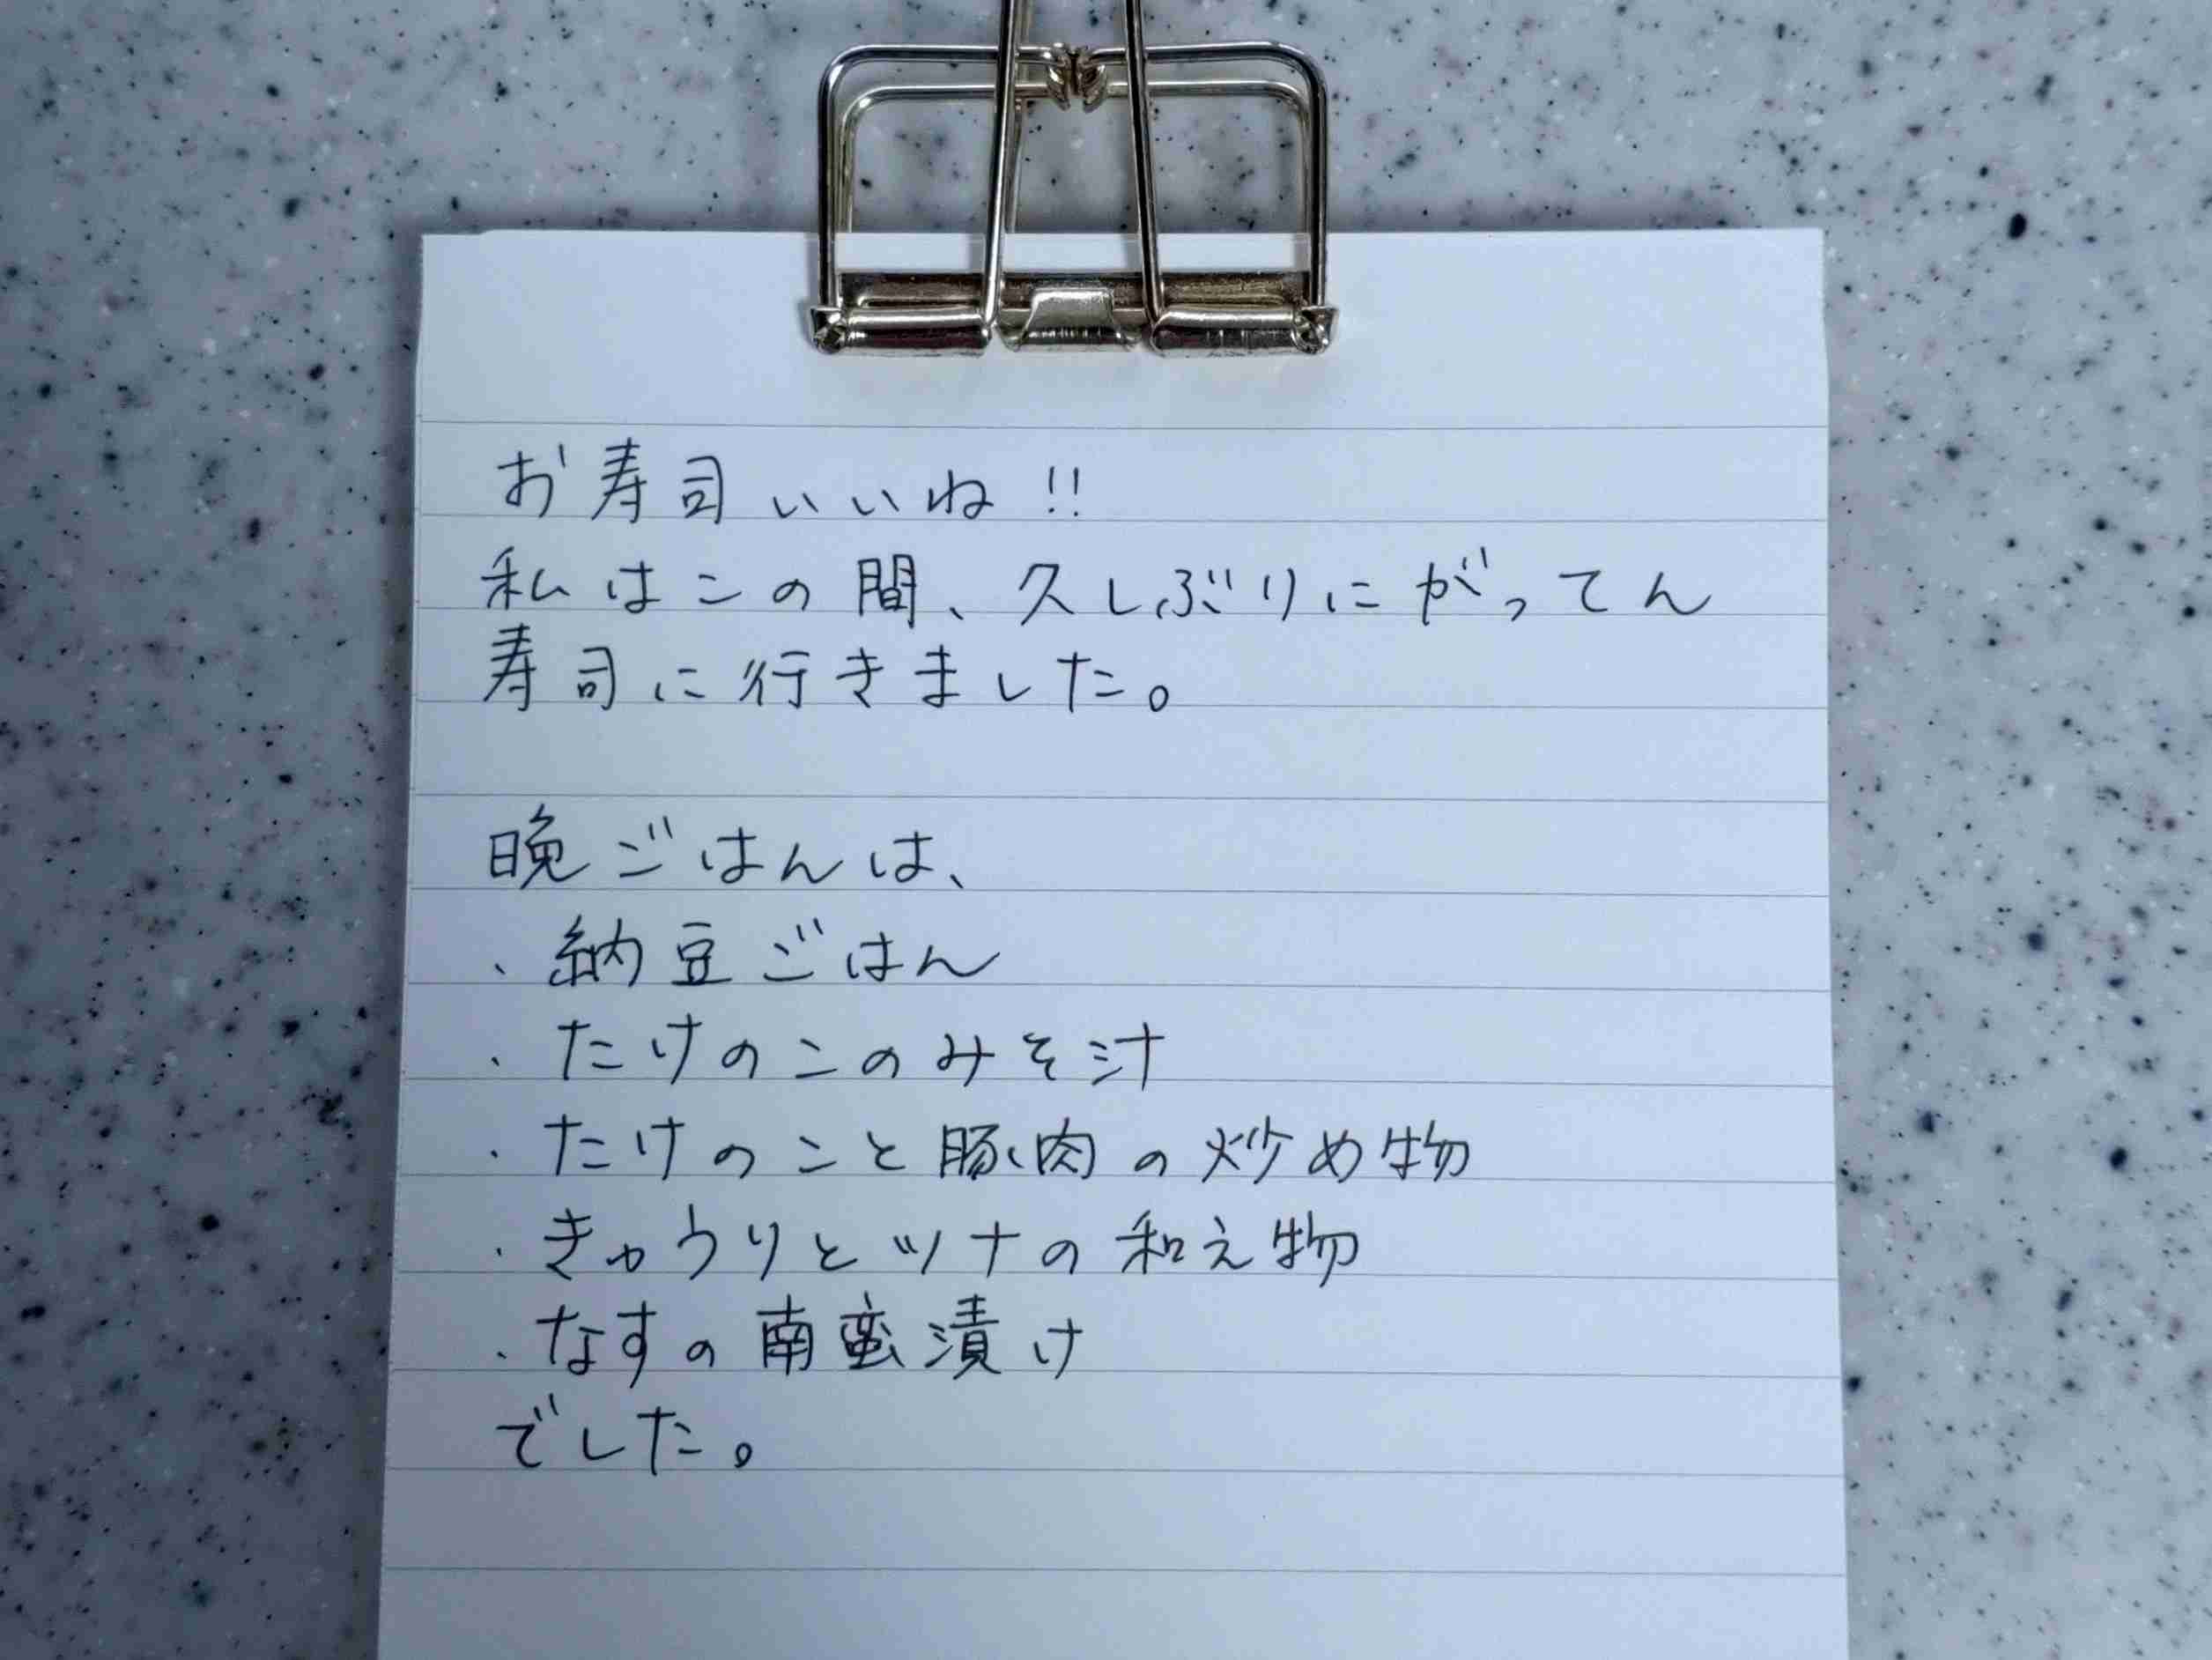 お寿司いいね!!
私はこの間、久しぶりにがってん
寿司に行きました。
晩ごはんは、
・納豆ごはん
・たけのこのみそ汁
・たけのこと豚肉の炒め物
・きゅうりとツナの和え物
・なすの南蛮漬け
でした。